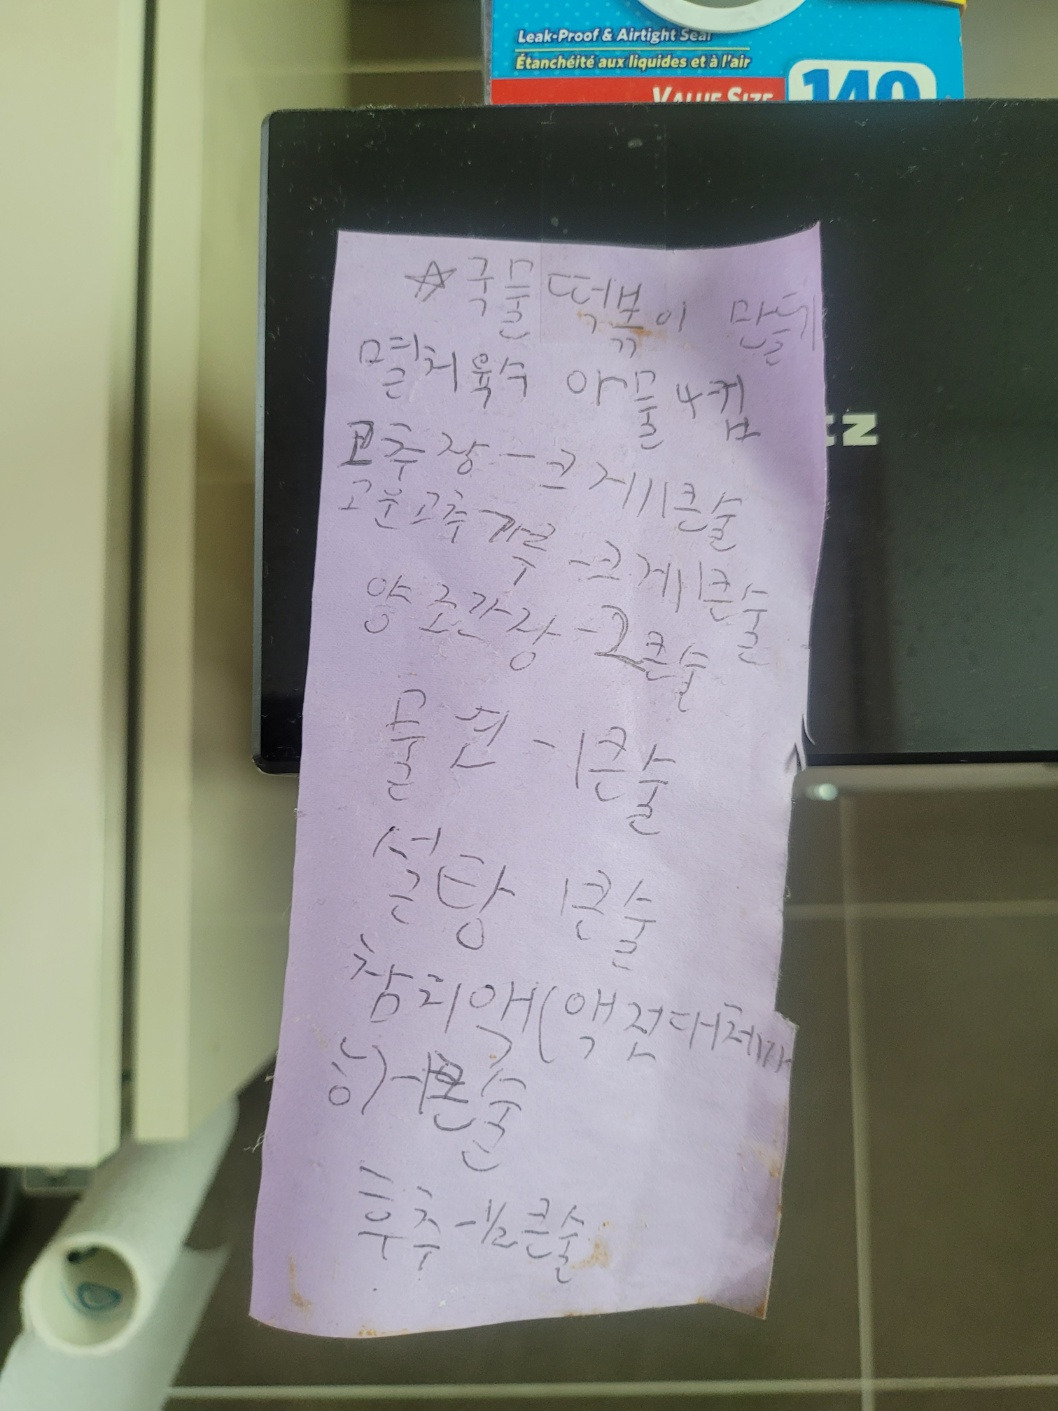 Leak-Proof & Airtight Seal
Étanchéité aux liquides et à l'air
VALUE SIZE 140
☆국물떡볶이 만들기
멸치육수 아물4컵
고추장 - 크게 1큰술
고운고추가루 - 크게 1큰술
양조간장 - 2큰술
물엿 - 1큰술
설탕 1큰술
참치액(액젓대체가
능) - 1큰술
후추 - 1/2큰술